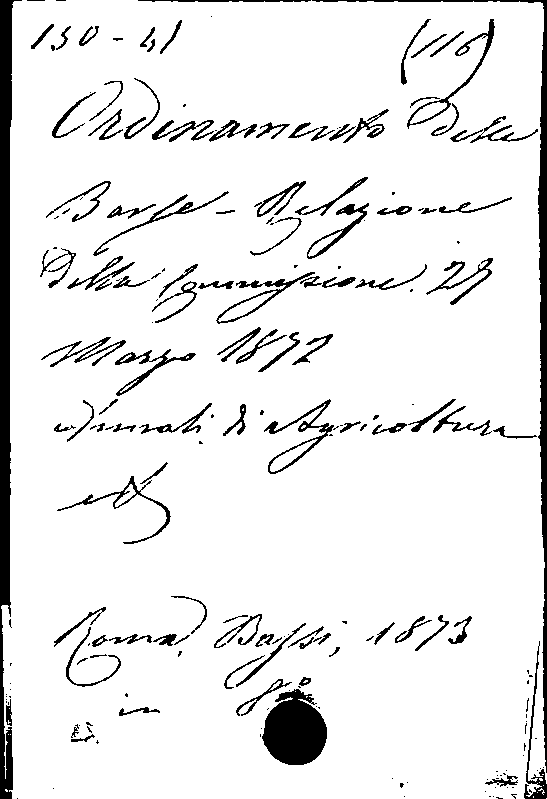 130-41 (116)
Ordinamento delle
Borse - Relazione
della Commissione. 29
Marzo 1872
Annali di Agricoltura
Roma. Bassi, 1873
in 8°